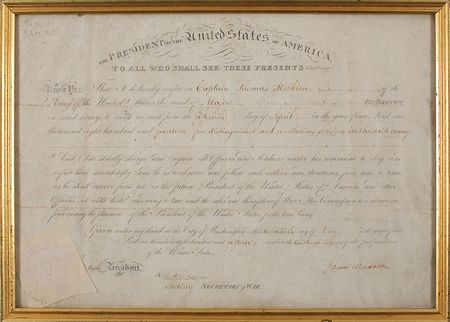 THE PRESIDENT OF THE United States OF AMERICA,
TO ALL WHO SHALL SEE THESE PRESENTS Greeting:
Know Ye, That I do hereby confer on Captain Thomas Stockton of the
Army of the United States the rank of Major BY BREVET,
in said army to rank as such from the day of April in the year of our Lord one
thousand eight hundred and fourteen for distinguished and services in the said army
And I do strictly charge and require all Officers and Soldiers under his command to obey and
respect him accordingly And he is to observe and follow such orders and directions from time to time
as he shall receive from me or the future President of the United States of America and other
Officers set over him according to law and the rules and discipline of War. This Commission to continue in
force during the pleasure of the President of the United States for the time being
Given under my hand at the City of Washington this day of May in the year of our
Lord one thousand eight hundred and and in the year of the
of the United States
By the President,
James Madison
Acting SECRETARY of WAR.